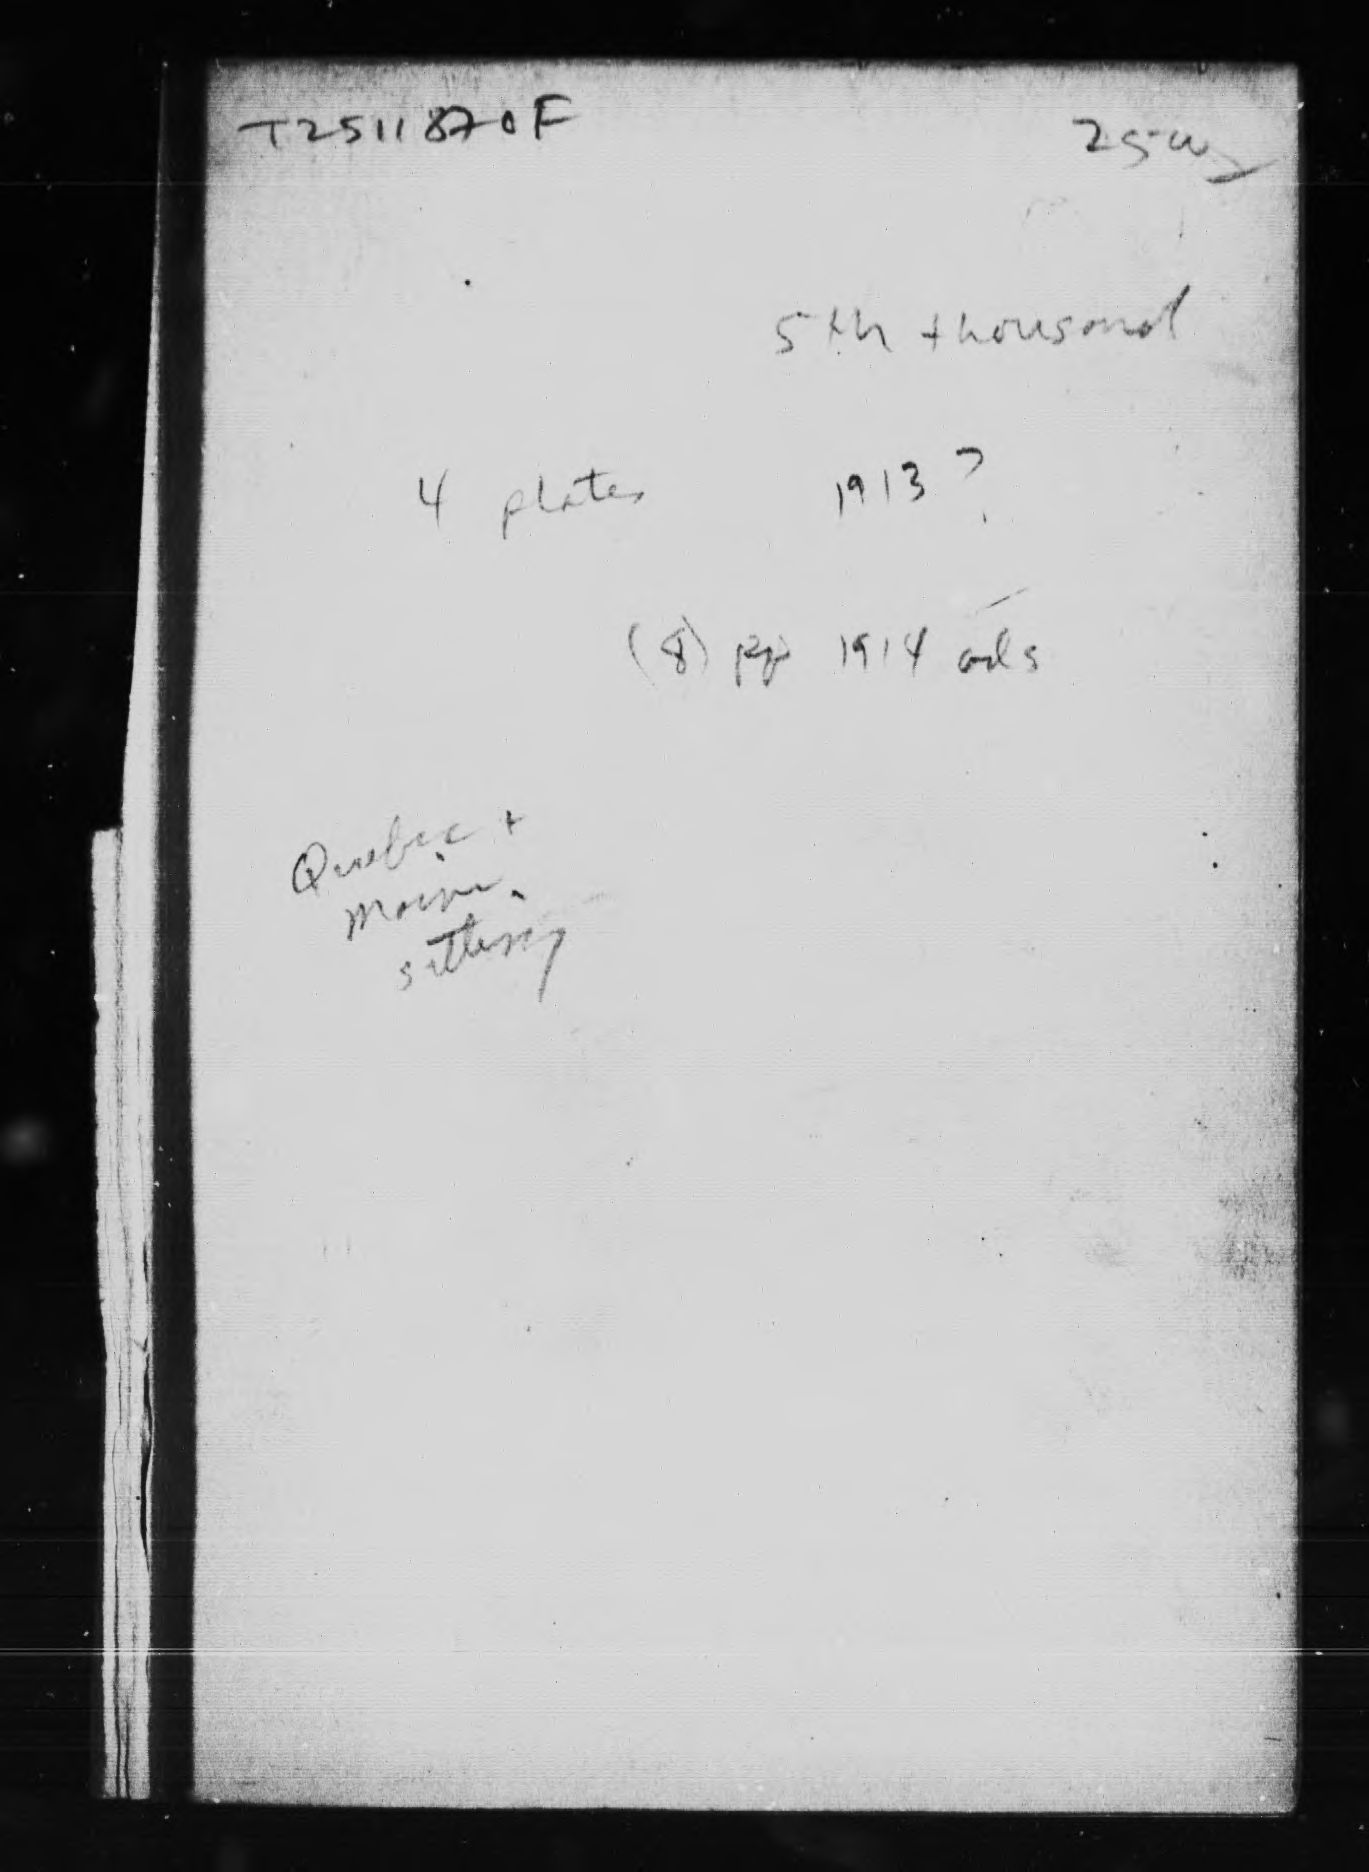 T2511870F
5th thousand
4 plates 1913?
(8) pp 1914 ads
Quebec +
Maine
setting